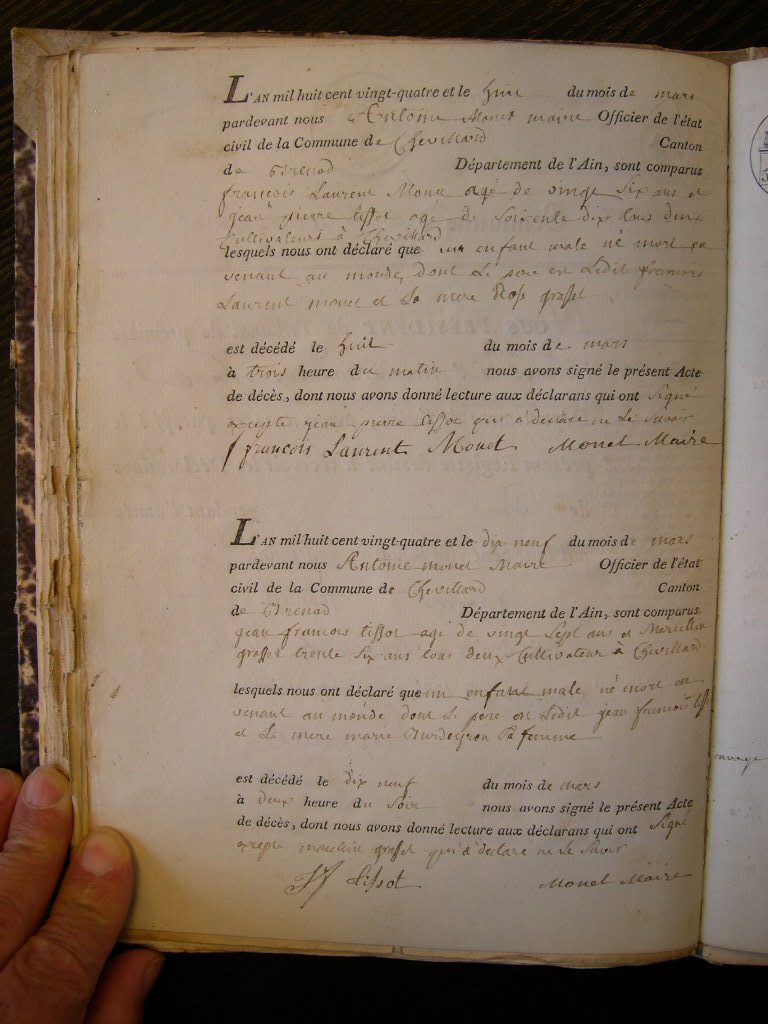 L'AN mil huit cent vingt-quatre et le huit du mois de mars
pardevant nous Antoine Monet maire Officier de l'état
civil de la Commune de Chevillard Canton
de Brenod Département de l'Ain, sont comparus
françois Laurent Monet agé de vingt six ans et
jean pierre tissot age de soixente dix tous deux
Cultivateurs à Chevillard
lesquels nous ont déclaré que un enfant male né mort en
venant au monde, dont Le pere est Ledit francois
Laurent monet et La mere Rose grasset
est décédé le huit du mois de mars
à trois heure du matin nous avons signé le présent Acte
de décès, dont nous avons donné lecture aux déclarans qui ont Signé
excepte jean pierre tissot qui a déclare ne Le Savoir
francois Laurent Monet Monet Maire
L'AN mil huit cent vingt-quatre et le dix neuf du mois de mars
pardevant nous Antoine monet Maire Officier de l'état
civil de la Commune de Chevillard Canton
de Brenod Département de l'Ain, sont comparus
jean francois tissot agé de vingt Sept ans et Marcellin
grasset trente Six ans tous deux Cultivateur à Chevillard
lesquels nous ont déclaré que un enfant male, né mort en
venant au monde dont Le pere est Ledit jean francois
et La mere marie Burdeyron Sa femme
est décédé le dix neuf du mois de mars
à deux heure du Soir nous avons signé le présent Acte
de décès, dont nous avons donné lecture aux déclarans qui ont Signé
excepté grasset qui a déclare ne Le Savoir
tissot Monet Maire